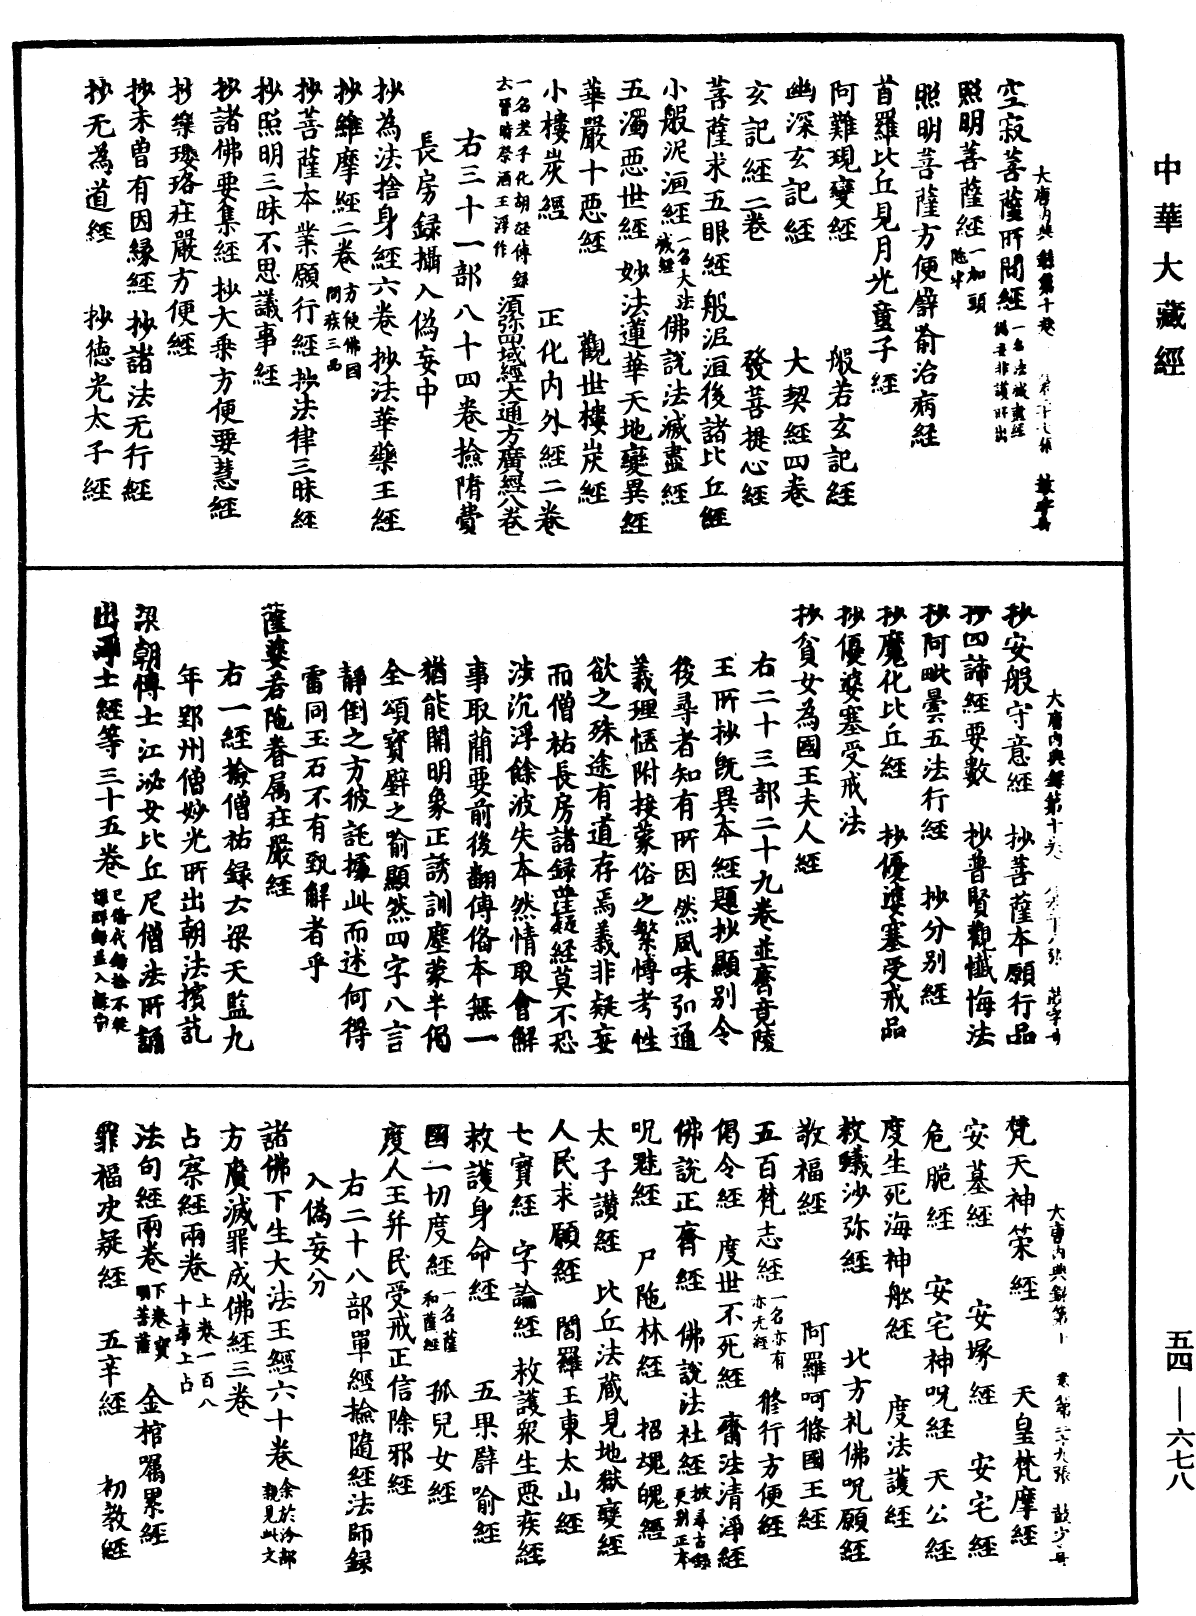 中華大藏經
大唐內典錄第十卷
空寂菩薩所問經一名法滅盡經偽妄非護所出
照明菩薩經一加頭陀字
照明菩薩方便譬喻治病經
首羅比丘見月光童子經
阿難現變經　般若玄記經
幽深玄記經　大契經四卷
玄記經二卷　發菩提心經
菩薩求五眼經　般泥洹後諸比丘經
小般泥洹經一名大法滅經　佛說法滅盡經
五濁惡世經　妙法蓮華天地變異經
華嚴十惡經　觀世樓炭經
小樓炭經　正化內外經二卷
一名老子化胡經傳錄云晉時祭酒王浮作　須弥四域經　大通方廣經八卷
右三十一部八十四卷撿隋費
長房錄攝入偽妄中
抄為法捨身經六卷　抄法華藥王經
抄維摩經二卷方便佛國問疾三品
抄菩薩本業願行經　抄法律三昧經
抄照明三昧不思議事經
抄諸佛要集經　抄大乘方便要慧經
抄樂瓔珞莊嚴方便經
抄未曾有因緣經　抄諸法无行經
抄无為道經　抄德光太子經
大唐內典錄第十卷
抄安般守意經　抄菩薩本願行品
抄四諦經要數　抄普賢觀懺悔法
抄阿毗曇五法行經　抄分別經
抄魔化比丘經　抄優婆塞受戒品
抄優婆塞受戒法
抄貧女為國王夫人經
右二十三部二十九卷並齊竟陵
王所抄旣異本經題抄顯別令
後尋者知有所因然風味弘通
義理愜附接蒙俗之繁博考性
欲之殊途有道存焉義非疑妄
而僧祐長房諸錄並疑經莫不恐
涉沉浮餘波失本然情取會解
事取蕳要前後翻傳俻本無一
猶能開明象正誘訓塵蒙半偈
全頌寶璧之喻顯然四字八言
靜倒之方彼託據此而述何得
雷同玉石不有甄解者乎
薩婆若陁眷属莊嚴經
右一經撿僧祐錄云梁天監九
年郢州僧妙光所出朝法擯訖
梁朝博士江泌女比丘尼僧法所誦
出淨土經等三十五卷
大唐內典錄第十
梵天神策經　天皇梵摩經
安墓經　安塚經　安宅經
危脆經　安宅神呪經　天公經
度生死海神舩經　度法護經
救蟻沙弥經　北方礼佛呪願經
敬福經　阿羅呵條國王經
五百梵志經一名亦有亦无經　脩行方便經
偈令經　度世不死經　齋法清淨經
佛說正齋經　佛說法社經披尋古錄更別正本
呪魅經　尸陁林經　招魂魄經
太子讚經　比丘法藏見地獄變經
人民求願經　閻羅王東太山經
七寶經　字論經　救護眾生惡疾經
救護身命經　五果譬喻經
國一切度經一名薩和薩經　孤兒女經
度人王并民受戒正信除邪經
右二十八部單經撿隨經法師錄
入偽妄分
諸佛下生大法王經六十卷余於汾部親見此文
方廣滅罪成佛經三卷
占察經兩卷上卷一百八十事上占
法句經兩卷下卷寶明菩薩　金棺囑累經
罪福決疑經　五辛經　初教經
五四—六七八